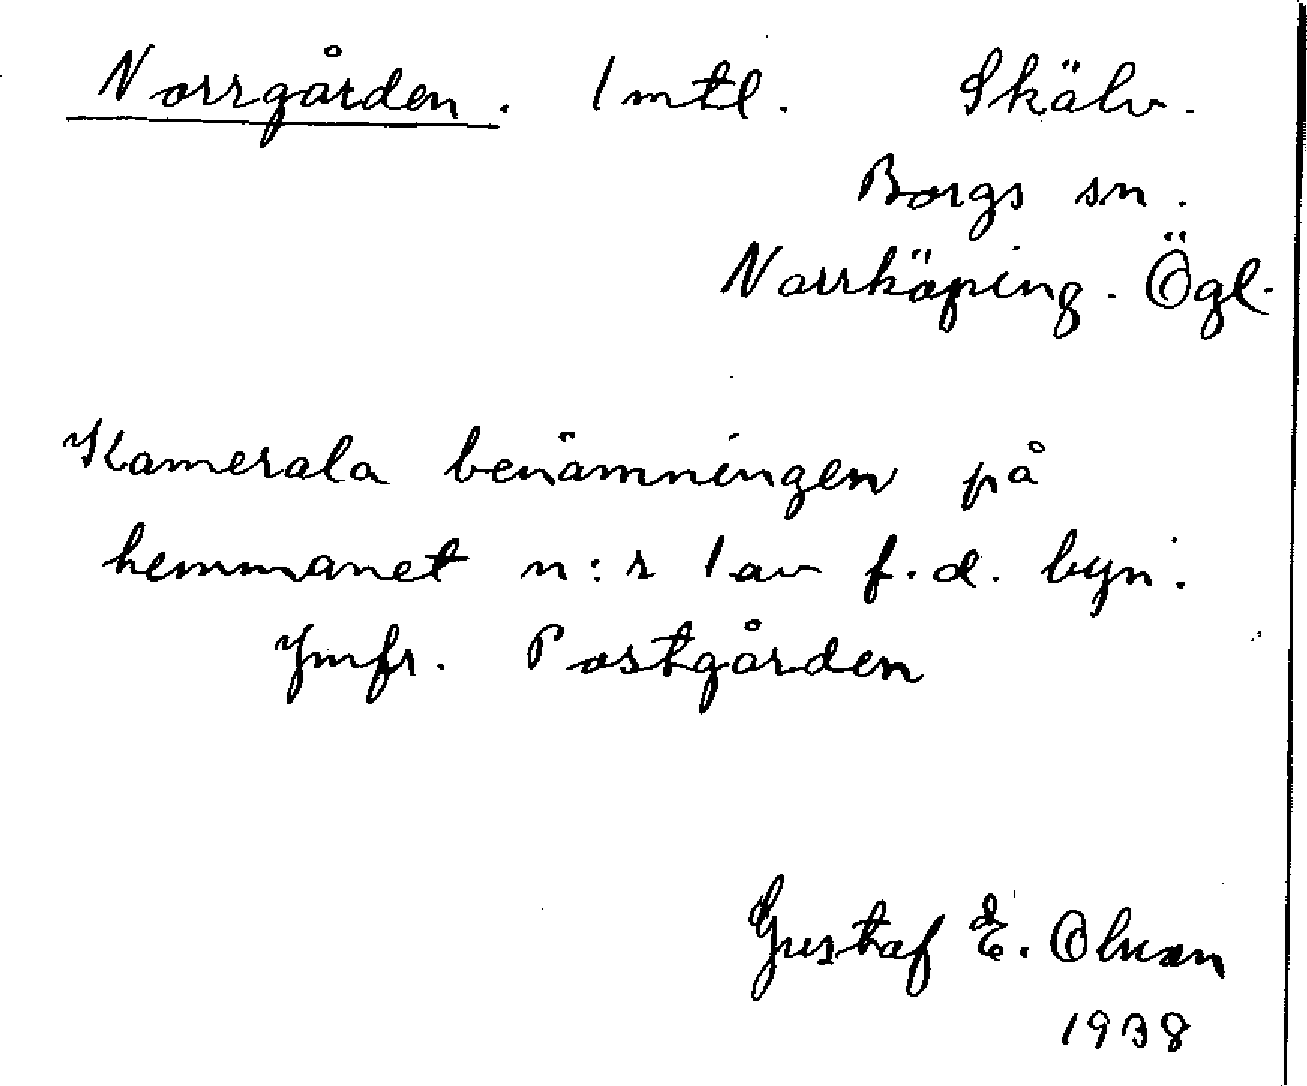 Norrgården. 1 mtl. Skälv.
Borgs sn.
Norrköping. Ögl.
Kamerala benämningen på
hemmanet n:r 1 av f.d. byn.
Jmfr. Postgården
Gustaf E. Olsson
1938